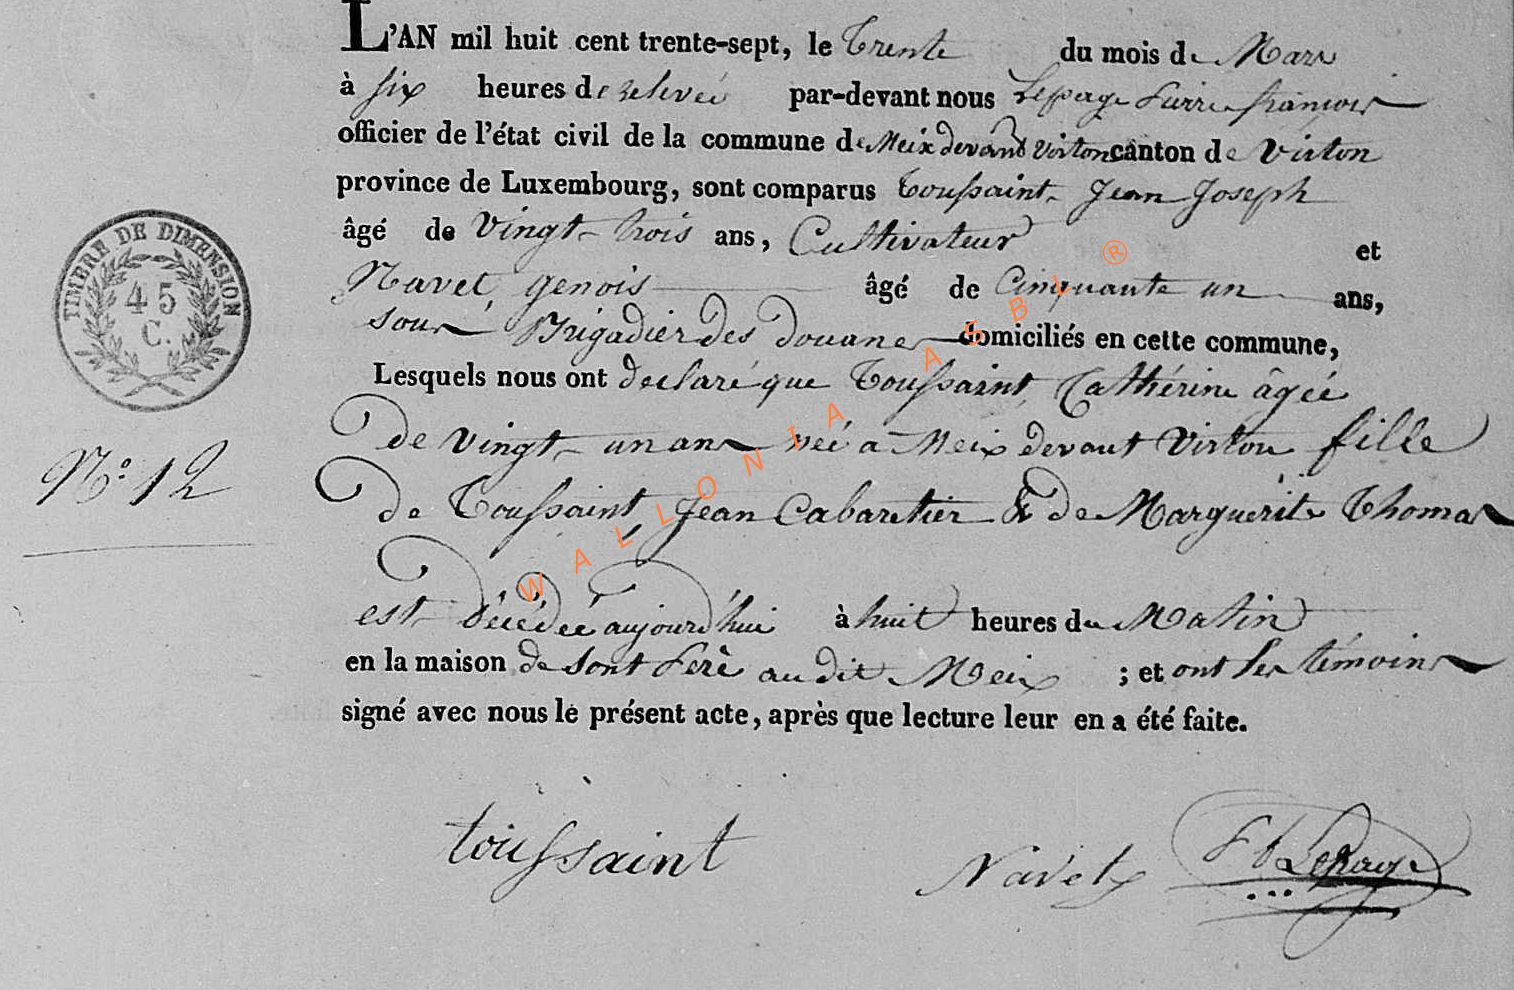 L'AN mil huit cent trente-sept, le Trente du mois de Mars
à six heures de relevée par-devant nous Lepage Pierre françois
officier de l'état civil de la commune de Meix devant Virton canton de Virton
province de Luxembourg, sont comparus Toussaint Jean Joseph
âgé de Vingt-trois ans, Cultivateur et
Navet, genois âgé de Cinquante un ans,
sous Brigadier des douanes domiciliés en cette commune,
Lesquels nous ont declaré que Toussaint, Cathérine âgée
de Vingt-un ans neé a Meix devant Virton fille
de Toussaint, Jean Cabaretier & de Marguerite Thomas
est Décédée aujourd'hui à huit heures du Matin
en la maison de sont Perè au dit Meix ; et ont les témoins
signé avec nous le présent acte, après que lecture leur en a été faite.
TIMBRE DE DIMENSION
45
C.
N.° 12
toussaint
Navet
LePage
WALLONIA ASBL ®